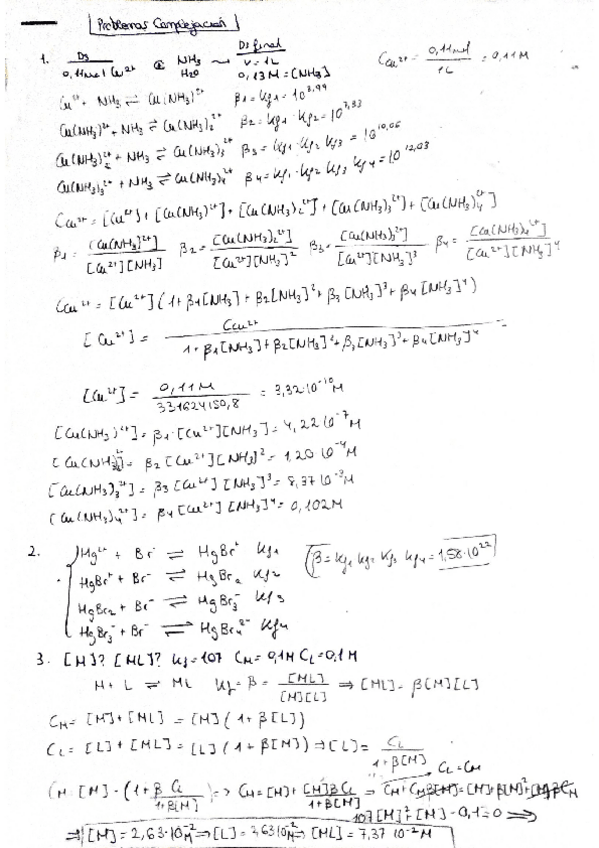 Problemas Complejación
1. Ds Ds final
0,11 mol Cu²⁺ @ NH₃ H₂O → V = 1L 0,13M = [NH₃] C_Cu²⁺ = 0,11mol / 1L = 0,11M
Cu²⁺ + NH₃ ⇌ Cu(NH₃)²⁺ β₁ = Kf₁ = 10^3,99
Cu(NH₃)²⁺ + NH₃ ⇌ Cu(NH₃)₂²⁺ β₂ = Kf₁ · Kf₂ = 10^7,33
Cu(NH₃)₂²⁺ + NH₃ ⇌ Cu(NH₃)₃²⁺ β₃ = Kf₁ · Kf₂ Kf₃ = 10^10,06
Cu(NH₃)₃²⁺ + NH₃ ⇌ Cu(NH₃)₄²⁺ β₄ = Kf₁ · Kf₂ Kf₃ Kf₄ = 10^12,03
C_Cu²⁺ = [Cu²⁺] + [Cu(NH₃)²⁺] + [Cu(NH₃)₂²⁺] + [Cu(NH₃)₃²⁺] + [Cu(NH₃)₄²⁺]
β₁ = [Cu(NH₃)²⁺] / [Cu²⁺][NH₃] β₂ = [Cu(NH₃)₂²⁺] / [Cu²⁺][NH₃]² β₃ = [Cu(NH₃)₃²⁺] / [Cu²⁺][NH₃]³ β₄ = [Cu(NH₃)₄²⁺] / [Cu²⁺][NH₃]⁴
C_Cu²⁺ = [Cu²⁺] (1 + β₁[NH₃] + β₂[NH₃]² + β₃[NH₃]³ + β₄[NH₃]⁴)
[Cu²⁺] = C_Cu²⁺ / 1 + β₁[NH₃] + β₂[NH₃]² + β₃[NH₃]³ + β₄[NH₃]⁴ =
[Cu²⁺] = 0,11M / 331624150,8 = 3,32·10⁻¹⁰ M
[Cu(NH₃)²⁺] = β₁ · [Cu²⁺][NH₃] = 4,22·10⁻⁷ M
[Cu(NH₃)₂²⁺] = β₂ [Cu²⁺][NH₃]² = 1,20·10⁻⁴ M
[Cu(NH₃)₃²⁺] = β₃ [Cu²⁺][NH₃]³ = 8,37·10⁻³ M
[Cu(NH₃)₄²⁺] = β₄ [Cu²⁺][NH₃]⁴ = 0,102M
2. Hg²⁺ + Br⁻ ⇌ HgBr⁺ Kf₁ β = Kf₁ Kf₂ Kf₃ Kf₄ = 1,58·10²²
HgBr⁺ + Br⁻ ⇌ HgBr₂ Kf₂
HgBr₂ + Br⁻ ⇌ HgBr₃⁻ Kf₃
HgBr₃⁻ + Br⁻ ⇌ HgBr₄²⁻ Kf₄
3. [M]? [ML]? Kf = 107 C_M = 0,1M C_L = 0,1M
M + L ⇌ ML Kf = β = [ML] / [M][L] ⇒ [ML] = β[M][L]
C_M = [M] + [ML] = [M] (1 + β[L])
C_L = [L] + [ML] = [L] (1 + β[M]) ⇒ [L] = C_L / 1 + β[M]
C_L = C_M
C_M = [M] · (1 + β C_L / 1 + β[M]) ⇒ C_M = [M] + [M]βC_L / 1 + β[M] ⇒ C_M + C_Mβ[M] = [M] + β[M]² + [M]βC_M
107[M]² + [M] - 0,1 = 0 ⇒
⇒ [M] = 2,63·10⁻² M ⇒ [L] = 2,63·10⁻² M ⇒ [ML] = 7,37·10⁻² M